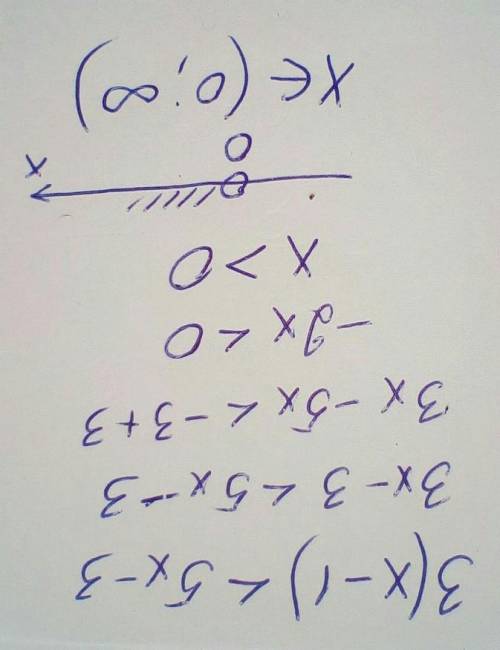 3(x-1) < 5x-3
3x-3 < 5x-3
3x-5x < -3+3
-2x < 0
x > 0
0 x
x ∈ (0; ∞)